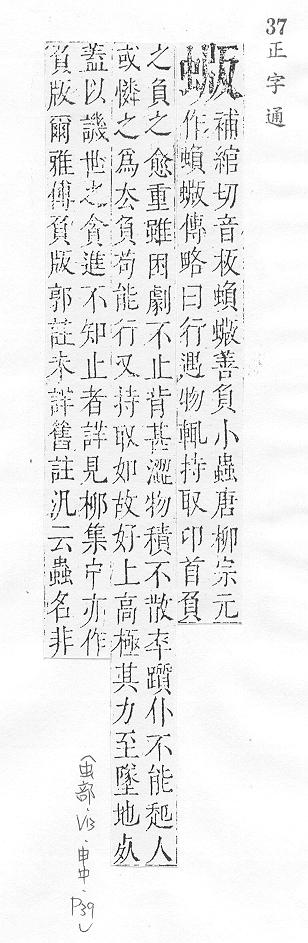 37
正字通
蝂
補綰切音板蝜蝂善負小蟲唐柳宗元
作蝜蝂傳略曰行遇物輒持取卬首負
之負之愈重雖困劇不止背甚澀物積不散卒躓仆不能起人
或憐之爲厺負苟能行又持取如故好上高極其力至墜地死
蓋以譏世之貪進不知止者詳見柳集中亦作
負版爾雅傅負版郭註未詳舊註汎云蟲名非
(虫部·V13·申中·P39)